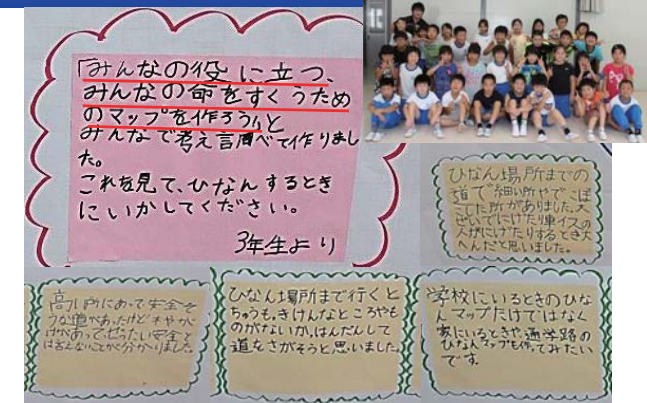 「みんなの役に立つ、
みんなの命をすくうため
のマップを作ろう」と
みんなで考え調べて作りまし
た。
これを見て、ひなんするとき
にいかしてください。
3年生より
ひなん場所までの
道で細い所やでこぼ
こした所がありました。大
ぜいでにげたり車イスの
人がにげたりするとき大
へんだと思いました。
高い所にあって安全そ
うな道があったけど
があってぜったい安全と
は言えないことが分かりました。
ひなん場所まで行くと
ちゅうも、きけんなところやも
のがないか、はんだんして
道をさがそうと思いました。
学校にいるときのひな
んマップだけではなく
家にいるときや、通学路の
ひなんマップも作ってみたい
です。